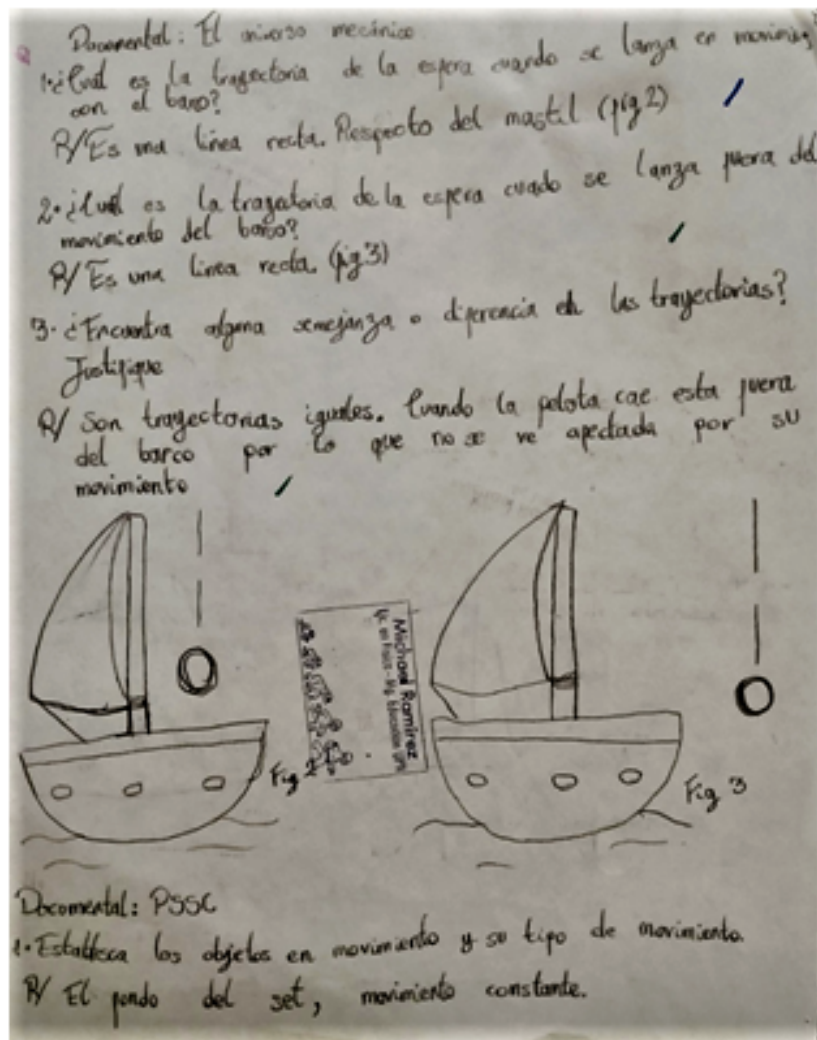 Documental: El universo mecánico
1. ¿Cuál es la trayectoria de la esfera cuando se lanza en movimiento
con el barco?
R/ Es una línea recta. Respecto del mastil (fig 2)
2. ¿Cuál es la trayectoria de la esfera cuado se lanza fuera del
movimiento del barco?
R/ Es una línea recta. (fig 3)
3. ¿Encuentra alguna semejanza o diferencia en las trayectorias?
Justifique
R/ Son trayectorias iguales. Cuando la pelota cae esta fuera
del barco por lo que no se ve afectada por su
movimiento
Michael Ramirez
Fig 2
Fig 3
Documental: PSSC
1. Establesca los objetos en movimiento y su tipo de movimiento.
R/ El fondo del set, movimiento constante.